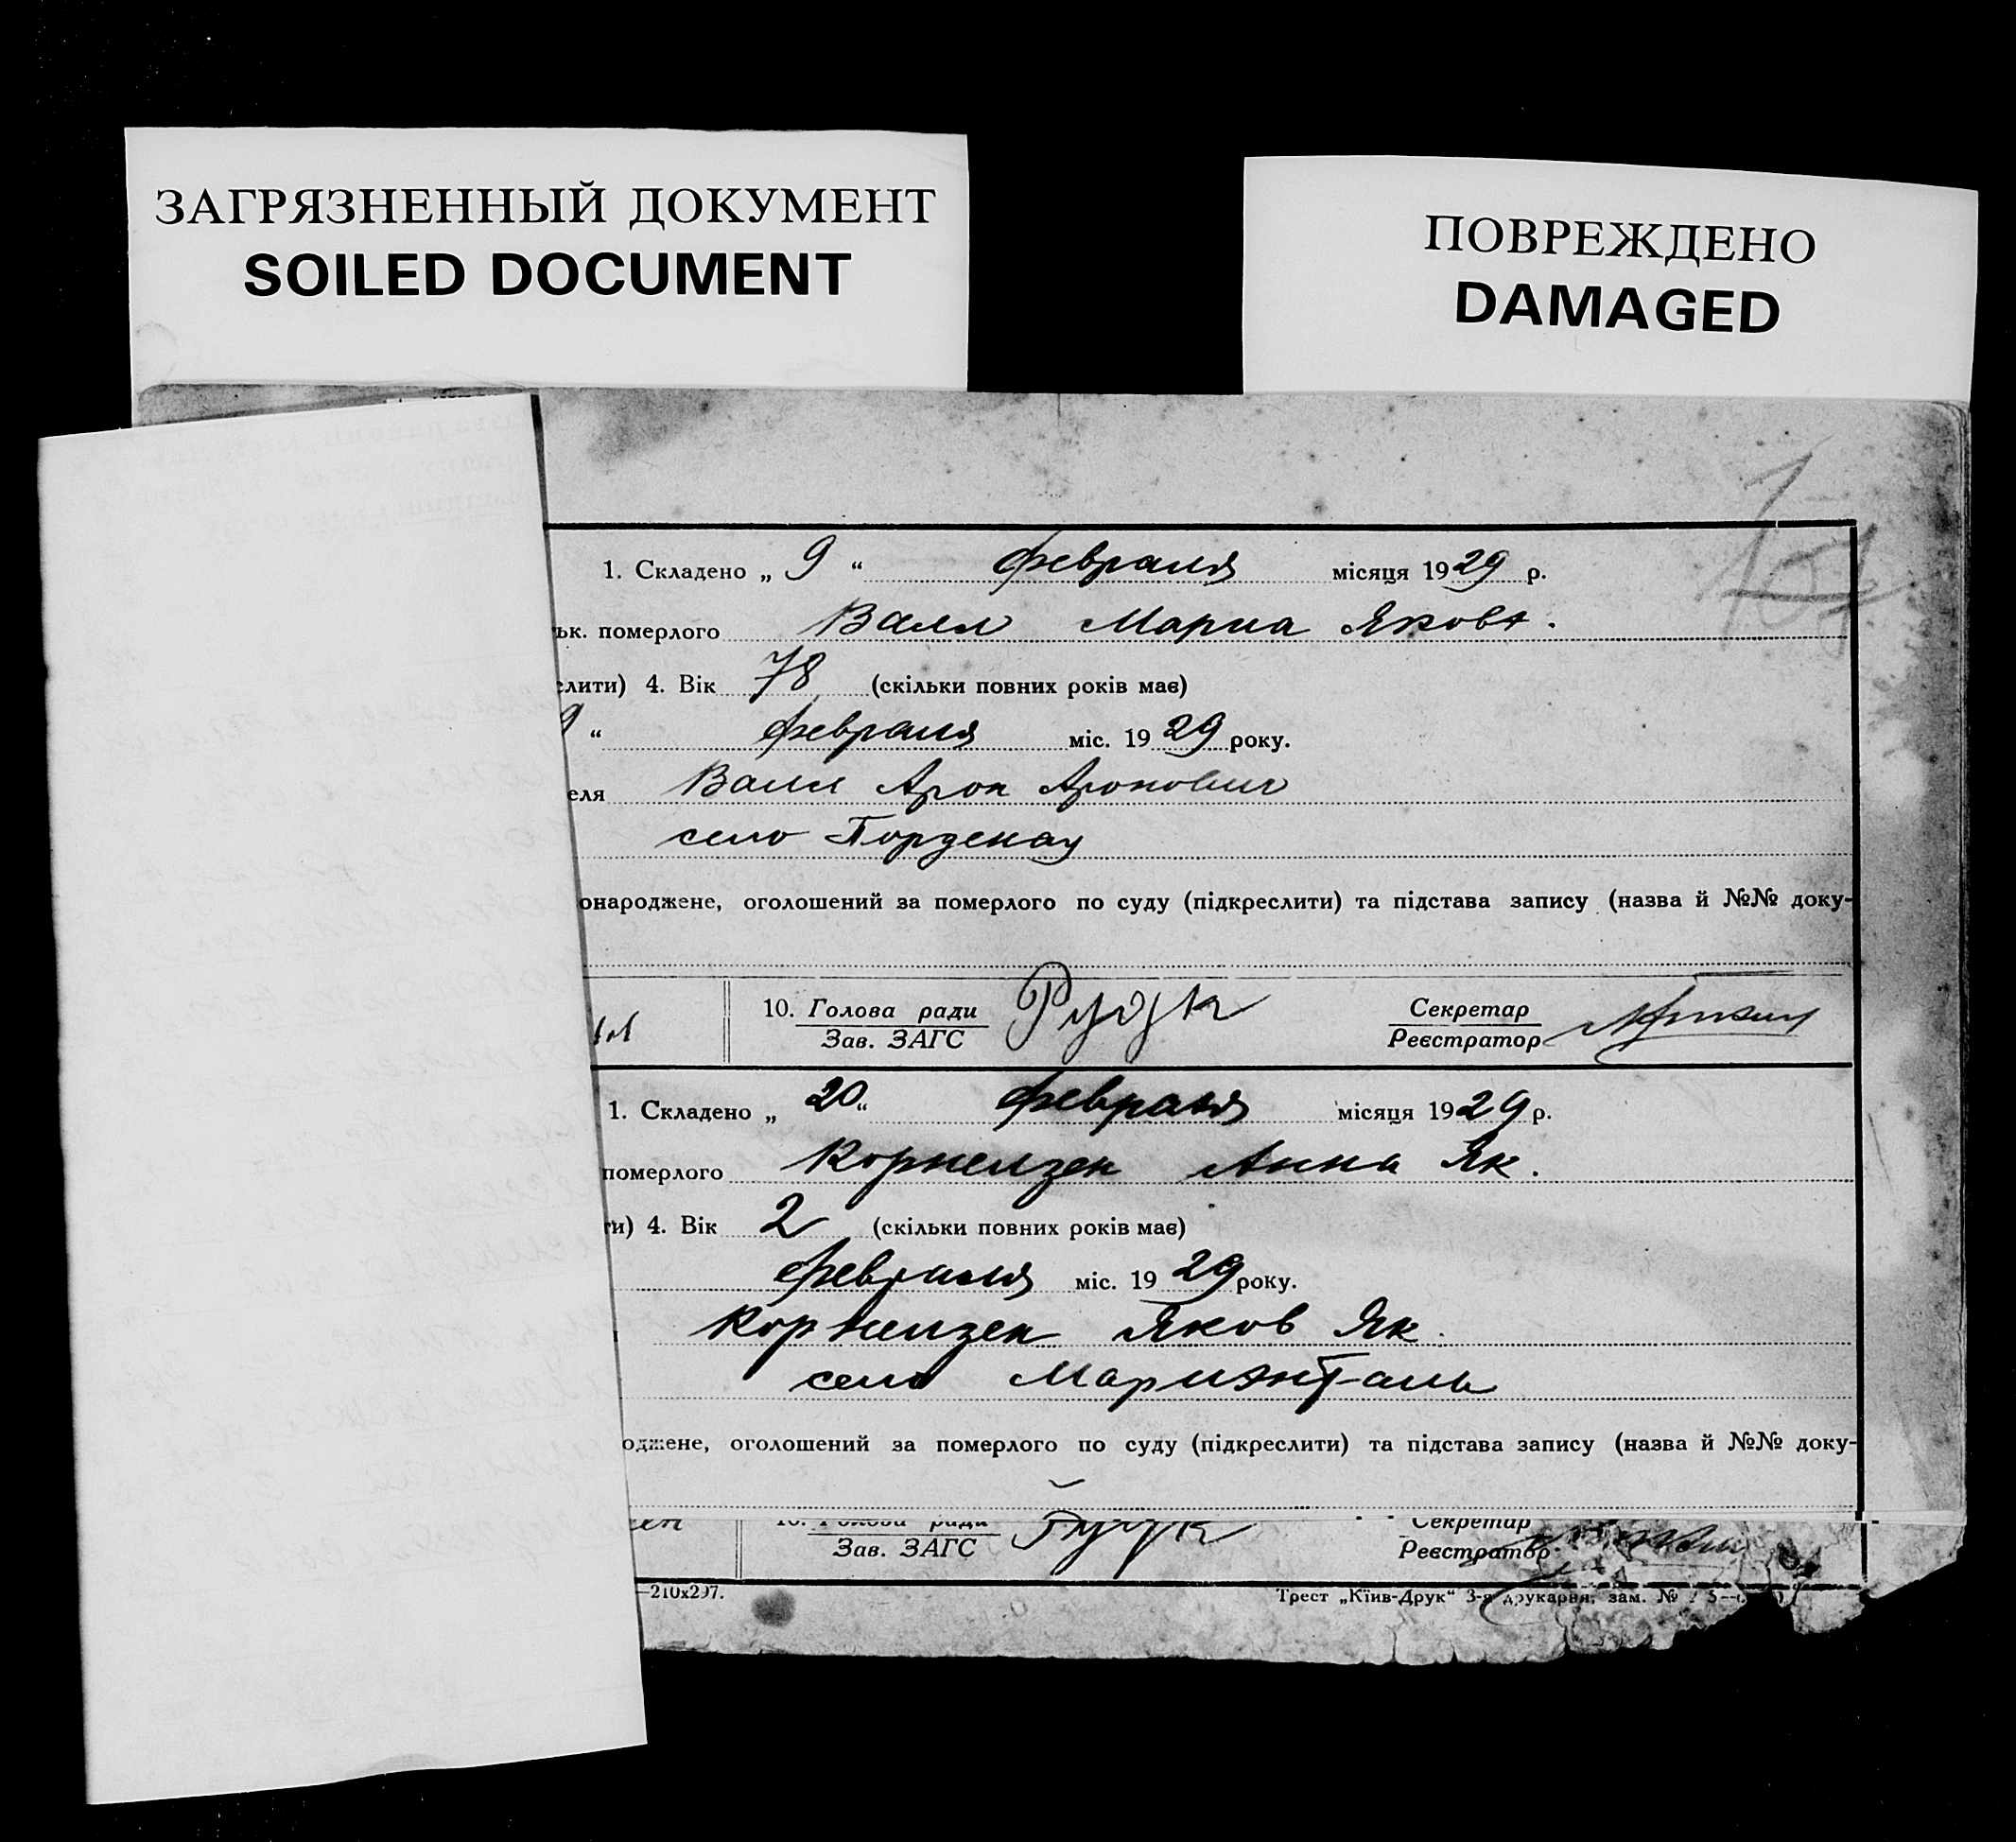 ЗАГРЯЗНЕННЫЙ ДОКУМЕНТ
SOILED DOCUMENT
ПОВРЕЖДЕНО
DAMAGED
1. Складено „ 9 “ февраля місяця 1929 р.
ьк. померлого Валл Мариа Яковл.
слити) 4. Вік 78 (скільки повних років має)
9 “ февраля міс. 1929 року.
еля Валл Арон Аронович
село Порденау
онароджене, оголошений за померлого по суду (підкреслити) та підстава запису (назва й №№ доку-
10. Голова ради
Зав. ЗАГС
Секретар
Реєстратор
1. Складено „ 20 “ февраля місяця 1929 р.
померлого Корнелзен Анна Як.
ти) 4. Вік 2 (скільки повних років має)
февраля міс. 1929 року.
Корнелзен Яков Як.
село Мариэнталь
оджене, оголошений за померлого по суду (підкреслити) та підстава запису (назва й №№ доку-
10. Голова ради
Зав. ЗАГС
Секретар
Реєстратор
—210x297.
Трест „Київ-Друк“ 3-я друкарня, зам. №